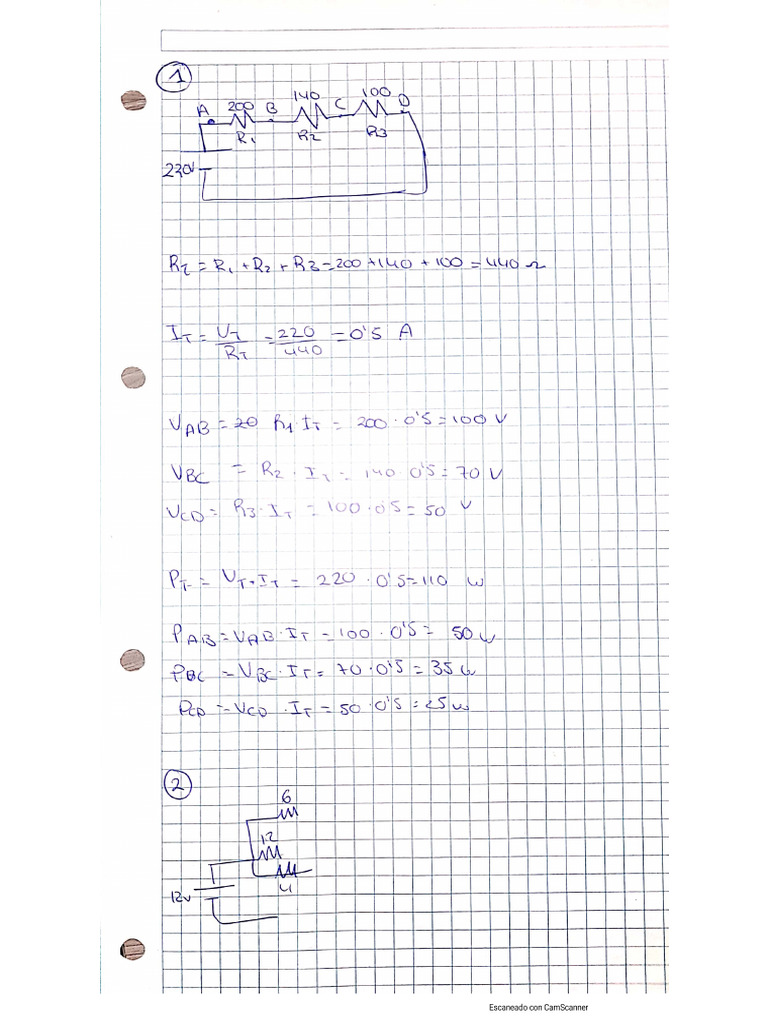 1
200 140 100
A B C D
R1 R2 R3
220V
RT = R1 + R2 + R3 = 200 + 140 + 100 = 440 Ω
IT = VT/RT = 220/440 = 0'5 A
VAB = 20 R1 · IT = 200 · 0'5 = 100 V
VBC = R2 · IT = 140 · 0'5 = 70 V
VCD = R3 · IT = 100 · 0'5 = 50 V
PT = VT · IT = 220 · 0'5 = 110 W
PAB = VAB · IT = 100 · 0'5 = 50 W
PBC = VBC · IT = 70 · 0'5 = 35 W
PCD = VCD · IT = 50 · 0'5 = 25 W
2
6
12
4
12V
Escaneado con CamScanner